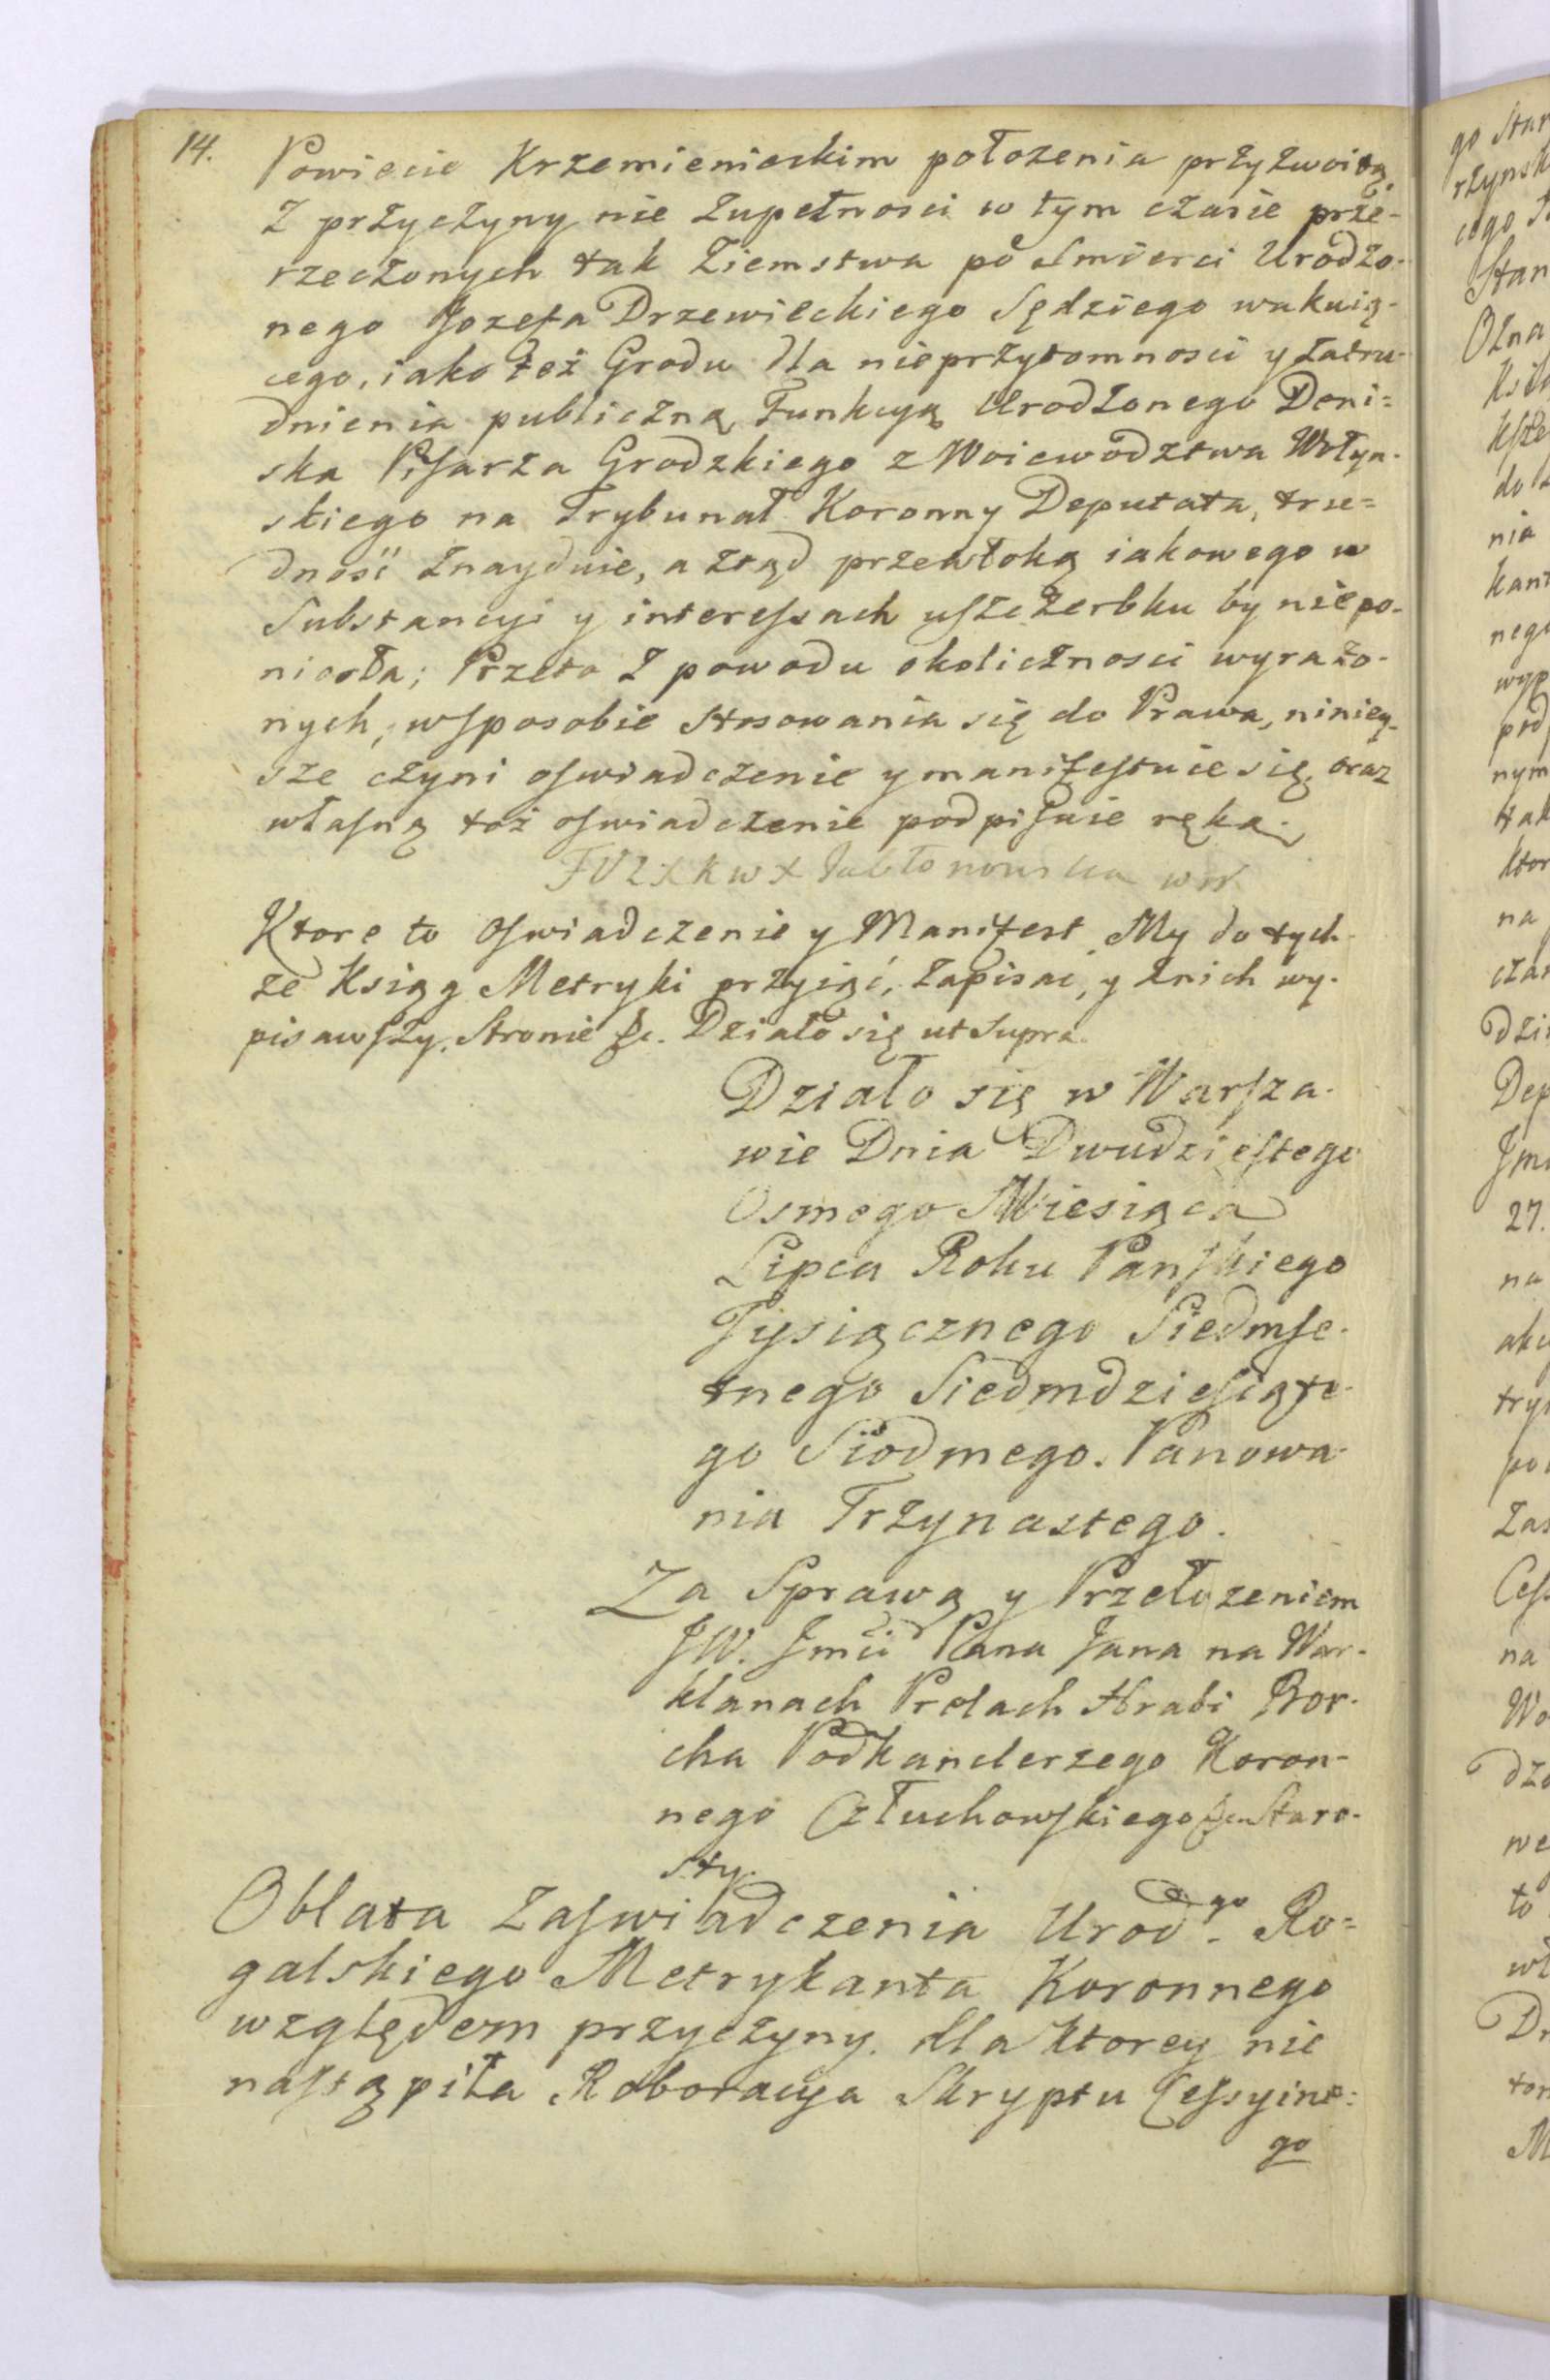 14.
Powiecie Krzemienieckim położenia przyzwoitą,
Z przyczyny nie zupełnosci w tym czasie prze-
rzeczonych tak Ziemstwa po Smierci Urodzo-
nego Jozefa Drzewieckiego Sędziego wakuią-
cego, iako też Grodu dla nieprzytomnosci y zatru-
dnienia publiczną Funkcyą Urodzonego Deni=
ska Pisarza Grodzkiego z Woiewodztwa Wołyn-
skiego na Trybunał Koronny Deputata, tru=
dność znayduie, a ztąd przewłoką iakowego w
Substancyi y interessach uszczerbku by niepo-
niosła; Przeto Z powodu okolicznosci wyrażo-
nych, wsposobie stosowania się do Prawa, niniey-
sze czyni oswiadczenie y manifestuie się, oraz
własną toż oswiadczenie podpisuie ręką.
Jabłonowska
Ktore to Oswiadczenie y Manifest My do tych-
że Ksiąg Metryki przyiąć, zapisać, y znich wy-
pisawszy, Stronie &c. Działo się ut Supra.
Działo się w Warsza-
wie Dnia Dwudziestego
Osmego Miesiąca
Lipca Roku Panskiego
Tysiącznego Siedmse-
tnego Siedmdziesiąte-
go Siodmego. Panowa-
nia Trzynastego.
Za Sprawą y Przełozeniem
JW. Jmci Pana Jana na War-
klanach Prelach Hrabi Bor-
cha Podkanclerzego Koron-
nego Człuchowskiego &c. Staro-
sty.
Oblata Zaswiadczenia Urod.go Ro=
galskiego Metrykanta Koronnego
względem przyczyny, dla ktorey nie
nastąpiła Roboracya Skryptu Cessyine=
go
go Star
rzynsk
cego
Stan
Ozna
Ksią
ksze
do
nia
kant
nego
wyp
pod
nym
tak
ktor
na
czas
dzi
Dep
Jmi
27.
na
akt
tryk
po
Zas
Cess
na
Wo
dzo
we
to
wł
Dr
tor
M